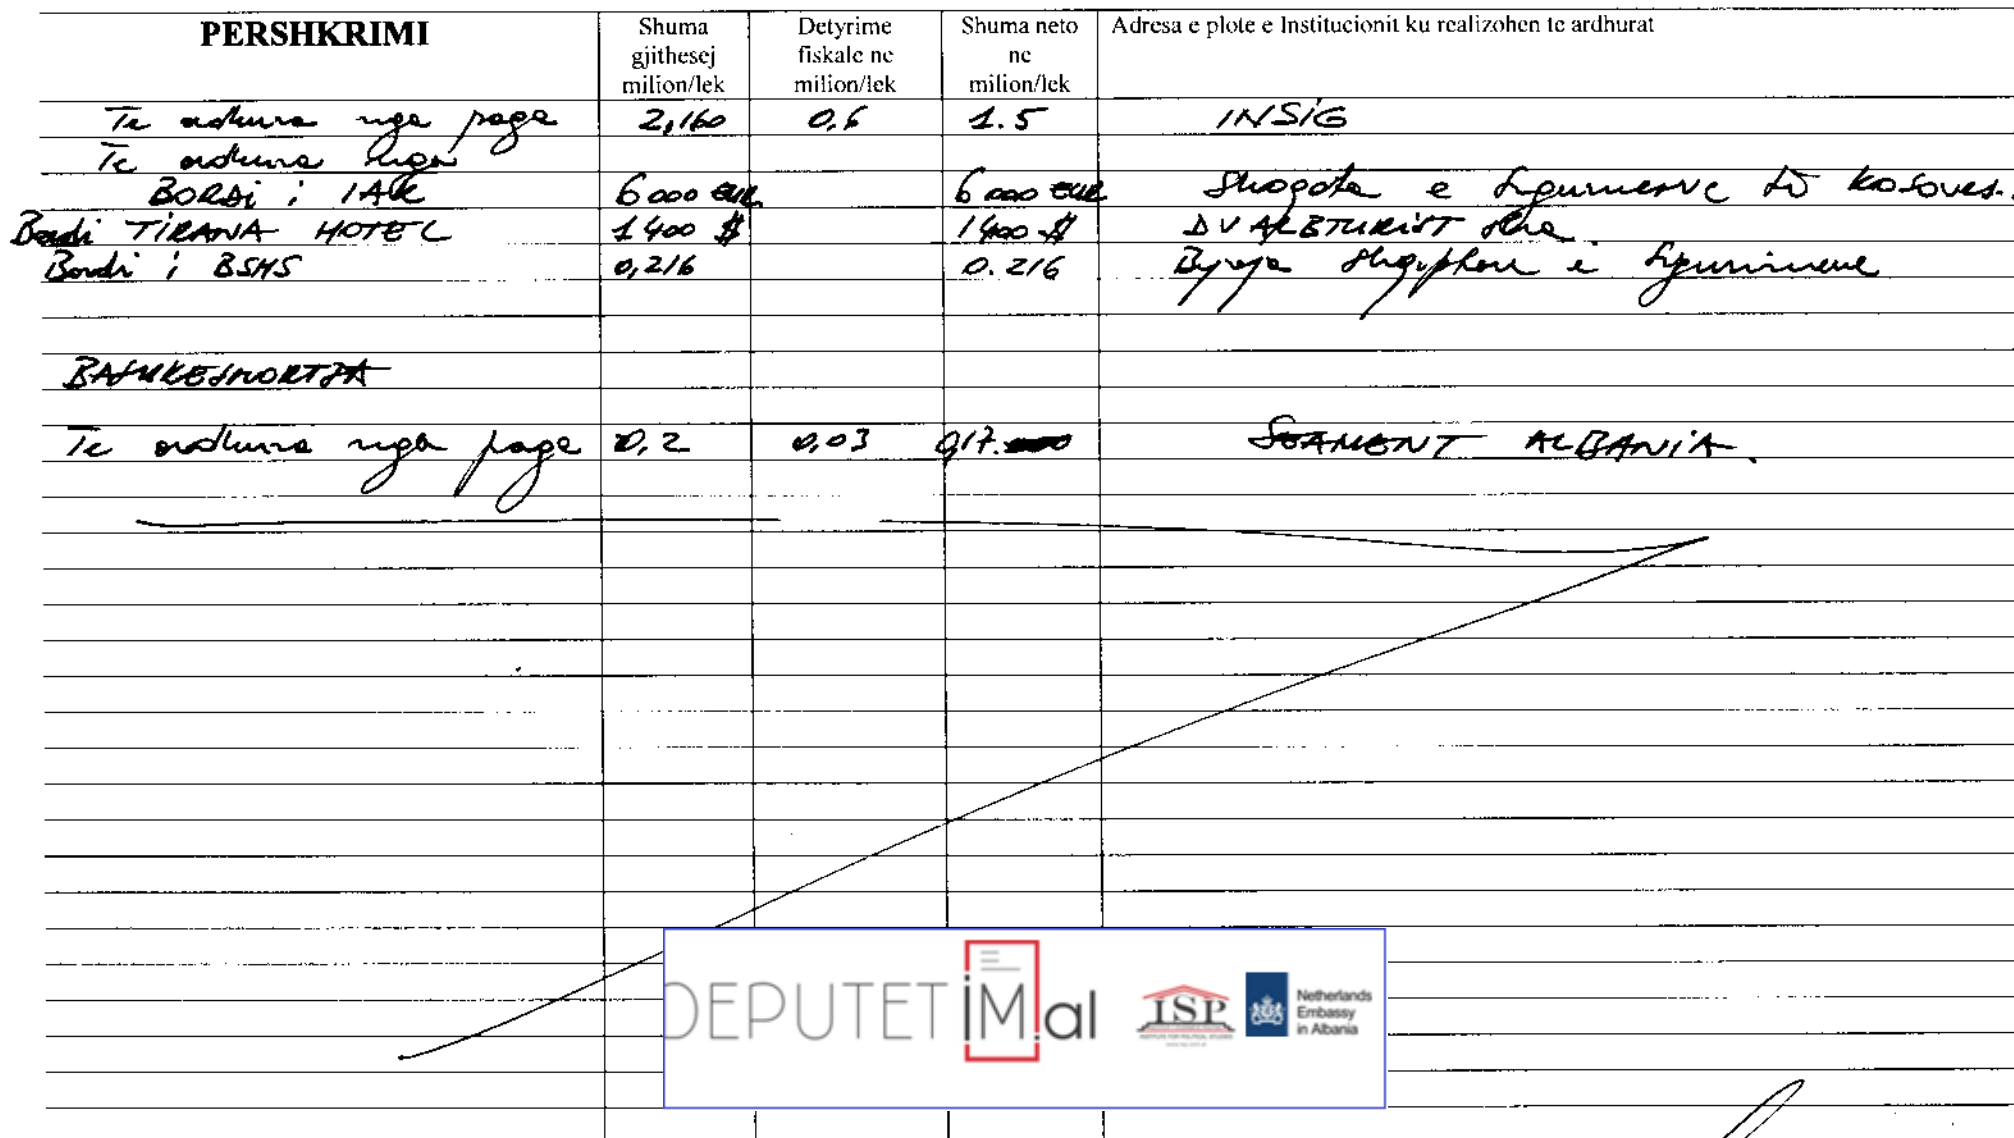 PERSHKRIMI
Shuma gjithesej milion/lek
Detyrime fiskale ne milion/lek
Shuma neto ne milion/lek
Adresa e plote e Institucionit ku realizohen te ardhurat
Te ardhura nga paga 2,160 0,6 1.5 INSIG
Te ardhura nga
BORDI i IAK 6000 EUR 6000 EUR Shoqata e Siguruesve të Kosoves.
Bordi TIRANA HOTEL 1400 $ 1400 $ ALBTURIST sha
Bordi i BSHS 0,216 0.216 Byroja Shqiptare e Sigurimeve
BASHKESHORTJA
Te ardhura nga paga 0,2 0,03 0,17. ALBANIA.
DEPUTETiM.al
ISP
INSTITUTE FOR POLITICAL STUDIES
Netherlands
Embassy
in Albania